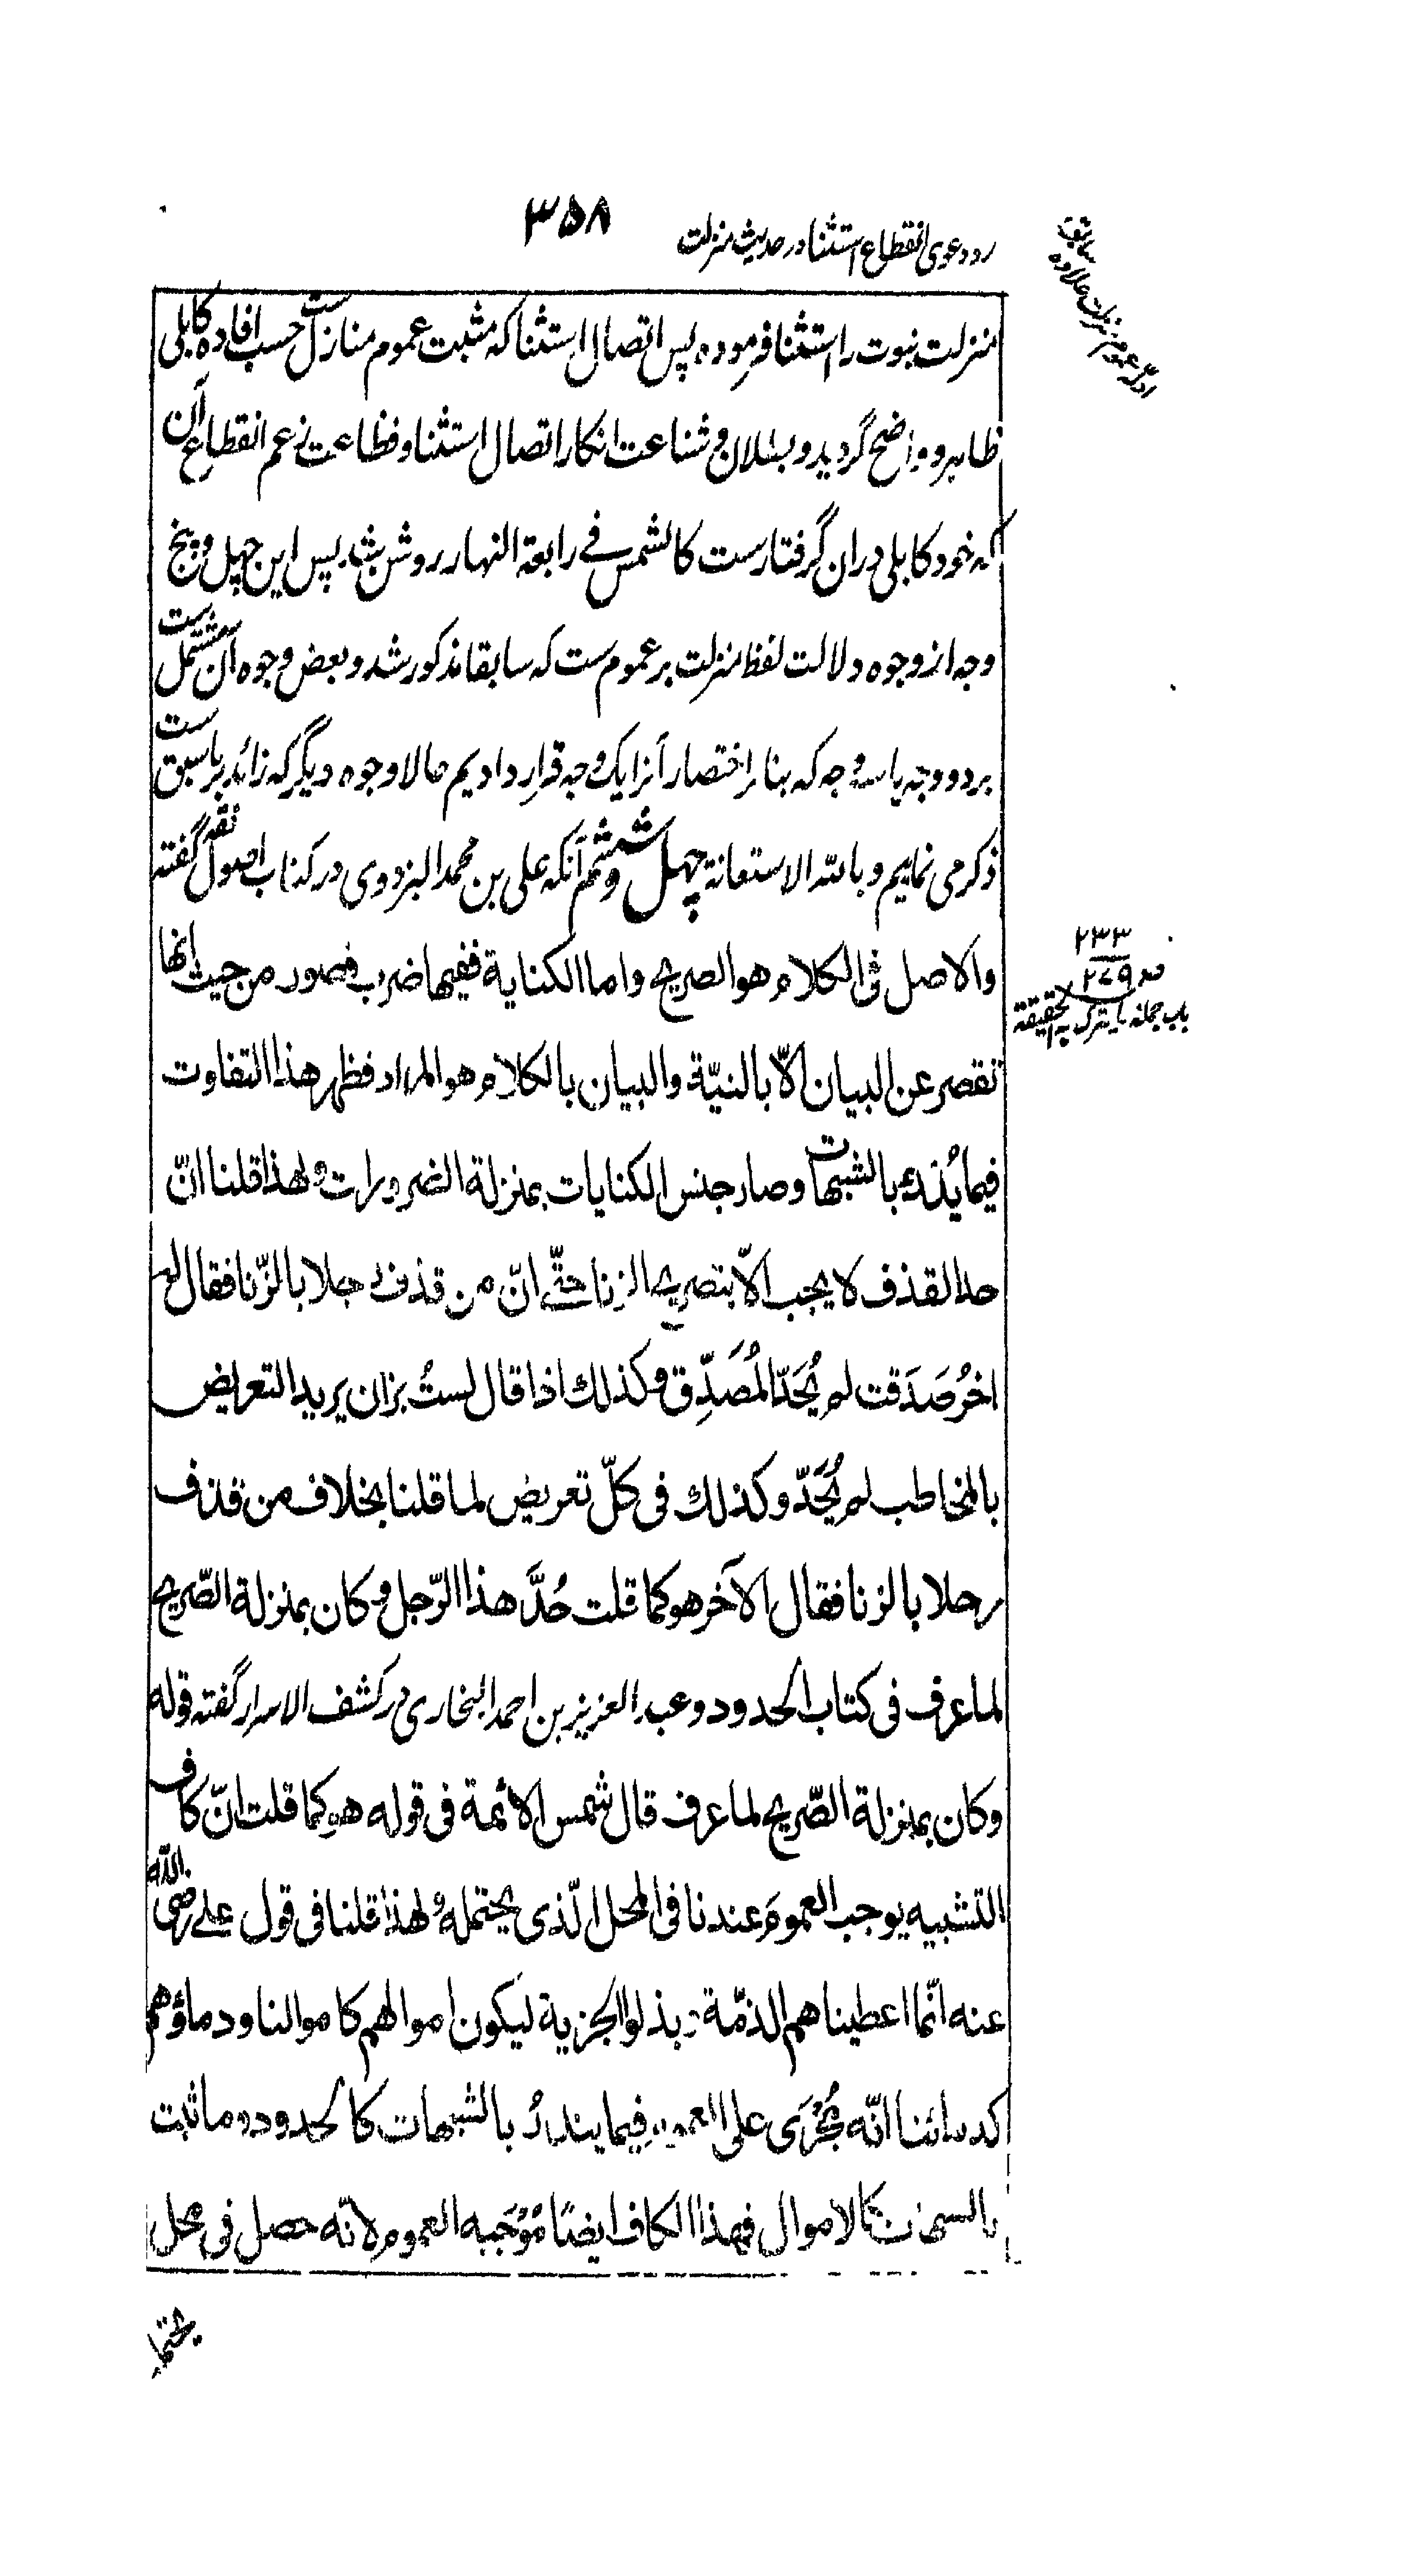 رد دعوی انقطاع استثنا در حدیث منزلت
۳۵۸
ادلّه عموم منزلت علاوه سابق
منزلت نبوت را استثنا فرموده پس اتصال استثنا که مثبت عموم منازل ست حسب افاده کابلی
ظاهر و واضح گردید و بطلان و شناعت انکار اتصال استثنا و فظاعت زعم انقطاع آن
که خود کابلی دران گرفتارست کالشمس فے رابعة النهار روشن شد پس این چهل و پنج
وجه از وجوه دلالت لفظ منزلت بر عموم ست که سابقا مذکور شد و بعض وجوه آن مشتمل ست
بر دو وجه یا سه وجه که بنابر اختصار آنرا یک وجه قرار دادیم حالا وجوه دیگر که زائد بر ما سبق ست
ذکر می نماییم و بالله الاستعانة چهل و ششم آنکه علی بن محمد البزدوی در کتاب اصول فقه گفته
والاصل فی الکلام هو الصریح واما الکنایة ففیها ضرب قصور من حیث انها
تقصر عن البیان الّا بالنیّة والبیان بالکلام هو المراد فظهر هذا التفاوت
فیما یُندرء بالشبهات وصار جنس الکنایات بمنزلة الضرورات ولهذا قلنا انّ
حد القذف لا یجب الّا بتصریح الزنا حتّی انّ من قذف رجلا بالزّنا فقال له
اخرُ صَدَقت لم یُحَدّ المُصَدِّق وکذلك اذا قال لستُ بزان یرید التعریض
بالمخاطب لم یُحَدّ وکذلك فی کلّ تعریض لما قلنا بخلاف من قذف
رجلا بالزنا فقال الآخر هو کما قلت حُدَّ هذا الرّجل وکان بمنزلة الصّریح
لما عرف فی کتاب الحدود وعبد العزیز بن احمد البخاری در کشف الاسرار گفته قوله
وکان بمنزلة الصّریح لما عرف قال شمس الائمة فی قوله هو کما قلت انّ کاف
التشبیه یوجب العموم عندنا فی المحل الّذی یحتمله ولهذا قلنا فی قول علے رضی الله
عنه انّما اعطیناهم الذمّة وبذلوا الجزیة لیکون اموالهم کاموالنا ودماؤهم
کدمائنا انّه مُجْرَی علی العموم فیما یندرئُ بالشبهات کالحدود وما ثبت
بالشبهات کالاموال فهذا الکاف ایضًا مُوْجَبه العموم لانّه حصل فی محل
یحتمله
۲۳۳
ص ۲۷۹
باب جملة ما یترك به الحقیقة